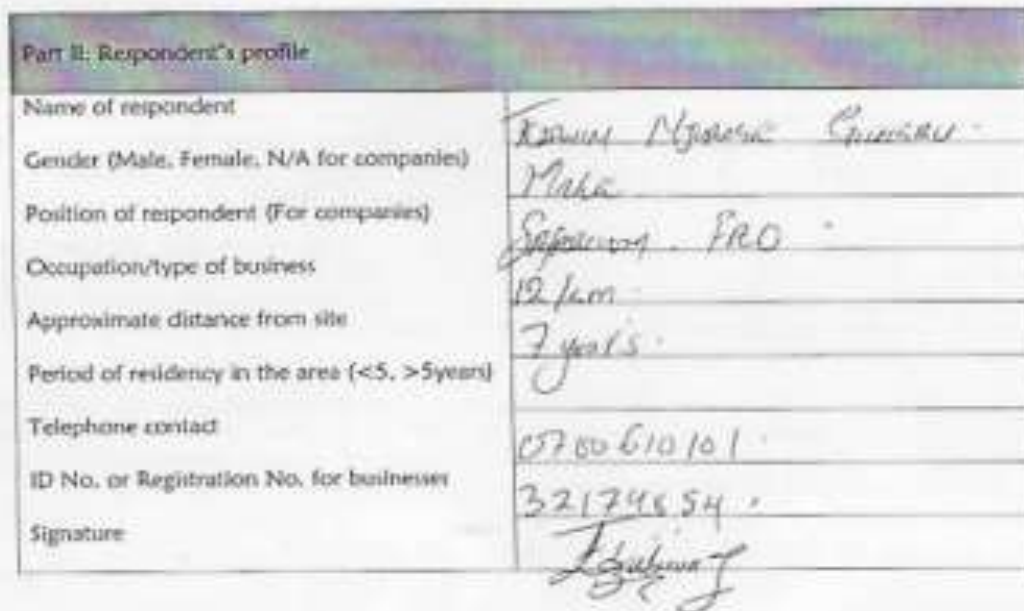 Part II: Respondent's profile
Name of respondent
Gender (Male, Female, N/A for companies)
Male
Position of respondent (For companies)
PRO
Occupation/type of business
12 km
Approximate distance from site
7 years.
Period of residency in the area (<5, >5years)
Telephone contact
0700610101.
ID No. or Registration No. for businesses
Signature